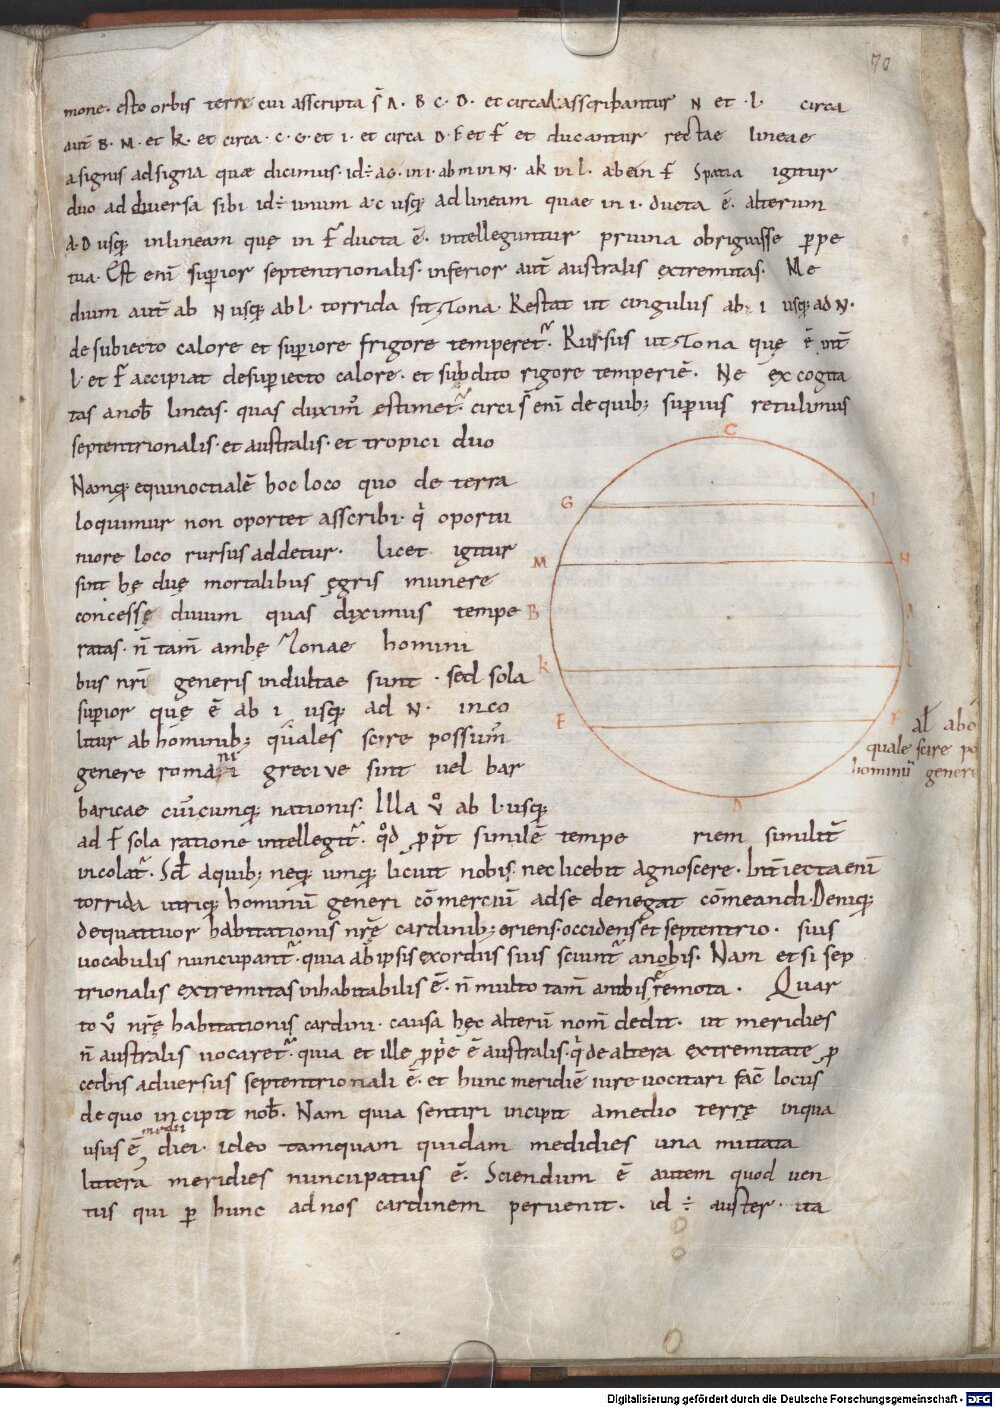 70
mone· esto orbis terrę cui asscripta s̄ A· B C· D· et circa A asscribantur N et ·L· circa
aut̄ B· M· et K· et circa · C· G· et I· et circa D· E et F et ducantur rectae lineae
a signis ad signa quae dicimus· id÷ a G· in I· ab m in N· a K in L· ab e in F Spatia igitur
duo ad diversa sibi id÷ unum a·c usq; ad lineam quae in I· ducta ē· alterum
A·D usq; in lineam quę in F ducta ē· intelleguntur pruina obriguisse ppe
tua· Est enī supior septentrionalis· inferior aut̄ australis extremitas· Me
dium aut̄ ab N usq; ab L· torrida sit zona· Restat ut cingulus ab· I usq; ad N·
de subiecto calore et supiore frigore temperet· Rursus ut zona quę ē int̄
L· et F accipiat de supiecto calore· et subdito rigore temperiē· Ne excogita
tas a nob̄ lineas· quas diximꝰ estimet· circi s̄ enī de quib; supius retulimus
septentrionalis· et australis· et tropici duo
Namq; equinoctialē hoc loco quo de terra
loquimur non oportet asscribi· q̄ oportu
niore loco rursus addetur· licet igitur
sint hę duę mortalibus ęgris munere
concessę divum quas diximus tempe
ratas· n̄ tam̄ ambę zonae homini
bus nrī generis indultae sunt · sed sola
supior quę ē ab I usq; ad N· inco
litur ab hominib; quales scire possumꝰ
genere romani grecive sint vel bar
baricae cuiꝰcumq; nationis· Illa ů ab L· usq;
ad F sola ratione intellegit· qd ppt̄ similē tempe riem similit̄
incolat· Sed̄ a quib; neq; umq; licuit nobis· nec licebit agnoscere· Int̄iecta enī
torrida utriq; hominū generi cōmerciū ad se denegat cōmeandi· Deniq;
de quattuor habitationis nrę̄ cardinib; oriens· occidens et septentrio· suis
vocabulis nuncupant· quia ab ipsis exordiis suis sciunt a nobis· Nam etsi sep
trionalis extremitas inhabitabilis ē· n̄ multo tam̄ a nobis ē remota · Quar
to ů nrę̄ habitationis cardini· causa hęc alterū nom̄ dedit· ut meridies
n̄ australis vocaret· quia et ille pprie ē australis· q̄ de altera extremitate p
cedens adversus septentrionali ē· et hunc meridiē iure vocitari fac̄ locus
de quo incipit nob̄· Nam quia sentiri incipit a medio terrę in qua
medii
usus ē diei· ideo tamquam quidam medidies una mutata
littera meridies nuncupatus ē· Sciendum ē autem quod ven
tus qui p hunc ad nos cardinem pervenit· id ÷ auster· ita
C
G I
M N
B A
K L
E F
D
al̄
quale scire po
hominū generi
Digitalisierung gefördert durch die Deutsche Forschungsgemeinschaft - DFG